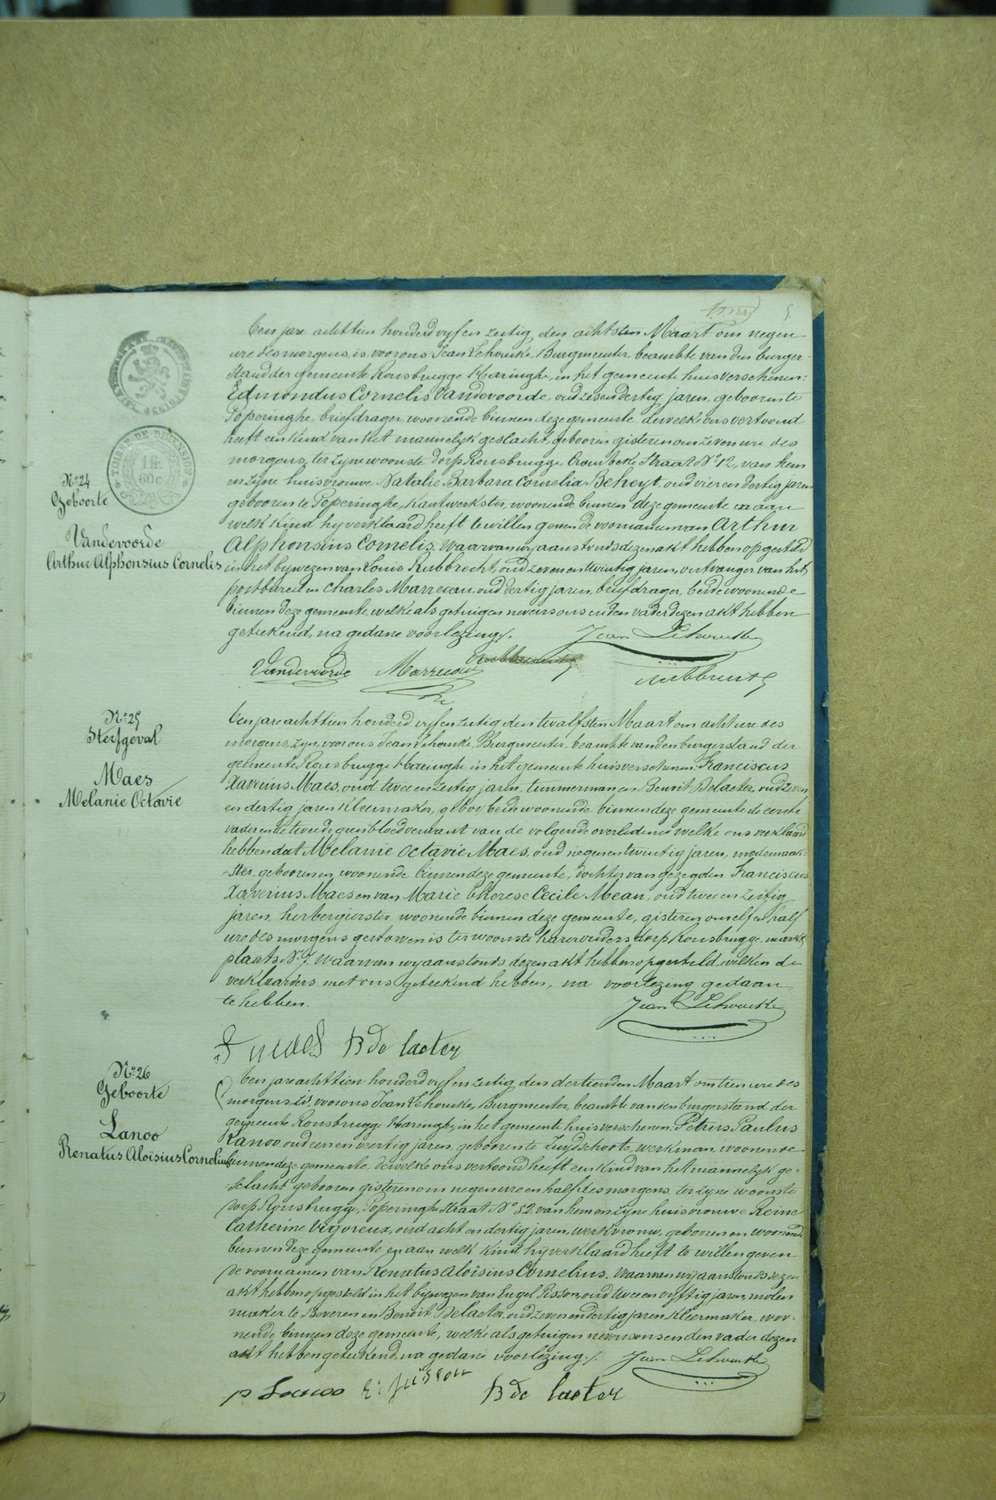 Een jare achttien honderd vyf en zestig, den achtsten Maart om negen
ure des morgens, is voor ons Jean Burgmeester, beambte van den burger
stand der gemeente Rousbrugge Haringhe, in het gemeente huis verschenen:
Edmondus Cornelis Vandevoorde, oud zes en dertig jaren, geboren te
Poperinghe, briefdrager, woonende binnen deze gemeente dewelk ons vertoond
heeft een kind van het mannelyk geslacht, geboren gisteren om zeven ure des
morgens, ter zyne woonste dorp Rousbrugge, Crombeek Straat No 12, van hem
en zyne huisvrouwe Natalie Barbara Cornelia Beheyt, oud vier en dertig jaren
geboren te Poperinghe, kantwerkster, woonende binnen deze gemeente en aan
welk kind hy verklaard heeft te willen geven de voornamen van Arthur
Alphonsius Cornelis, waarvan wy aanstonds dezen akt hebben opgesteld
in het bywezen van Louis Rubbrecht, oud zeven en twintig jaren, ontvanger van het
postbureel en Charles oud dertig jaren, briefdrager, beide woonende
binnen deze gemeente, welke als getuigen nevens ons en den vader dezen akt hebben
geteekend, na gedane voorlezing./.
No 24
Geboorte
Vandevoorde
Arthur Alphonsius Cornelis
TIMBRE DE DIMENSION
1 F.
60 c.
Vandevoorde
Een jare achttien honderd vyf en zestig den twalfsten Maart om acht ure des
morgens, zyn voor ons Jean Burgmeester, beambte van den burgerstand der
gemeente Rousbrugge Haringhe in het gemeente huis verschenen Franciscus
Xaverius Maes, oud twee en zestig jaren, timmerman en Benoit Delaeter, oud zeven
en dertig jaren kleermaker, gebuer, beide woonende binnen deze gemeente de eerste
vader en de tweede geen bloedverwant van de volgende overledene welke ons verklaard
hebben dat Melanie Octavie Maes, oud negen en twintig jaren, modemaak-
ster, geboren en woonende binnen deze gemeente, dochter van gezegden Franciscus
Xaverius Maes en van Marie Therese Cecile Mean, oud twee en zestig
jaren, herbergierster, woonende binnen deze gemeente, gisteren om elf en half
ure des morgens gestorven is ter woonste harer ouders dorp Rousbrugge, markt
plaats No 7, waarvan wy aanstonds dezen akt hebben opgesteld, welken de
verklaarders met ons geteekend hebben, na voorlezing gedaan
te hebben.
No 25
Sterfgeval
Maes
Melanie Octavie
F Maes B de laeter
Een jare achttien honderd vyf en zestig, den dertienden Maart om tien ure des
morgens is voor ons Jean Burgmeester, beambte van den burgerstand der
gemeente Rousbrugge Haringhe, in het gemeente huis verschenen Petrus Paulus
Lanoo oud een en veertig jaren, geboren te Zuydschoote, werkman, woonende
binnen deze gemeente, dewelke ons vertoond heeft een kind van het mannelyk ge-
slacht, geboren gisteren om negen ure en half des morgens, ter zyne woonste
dorp Rousbrugge, Poperinghe straat, No 52 van hem en zyne huisvrouwe Reine
Catherine Vigoreux, oud acht en dertig jaren, werkvrouw, geboren en woonende
binnen deze gemeente, en aan welk kind hy verklaard heeft te willen geven
de voornamen van Renatus Aloisius Cornelius, waarvan wy aanstonds dezen
akt hebben opgesteld in het bywezen van Engel oud twee en vyftig jaren, molen
maeker te Beveren en Benoit Delaeter, oud zeven en dertig jaren kleermaker, woo-
nende binnen deze gemeente, welke als getuigen nevens ons en den vader dezen
akt hebben geteekend, na gedane voorlezing./.
No 26
Geboorte
Lanoo
Renatus Aloisius Cornelius
p Lanoo B de laeter